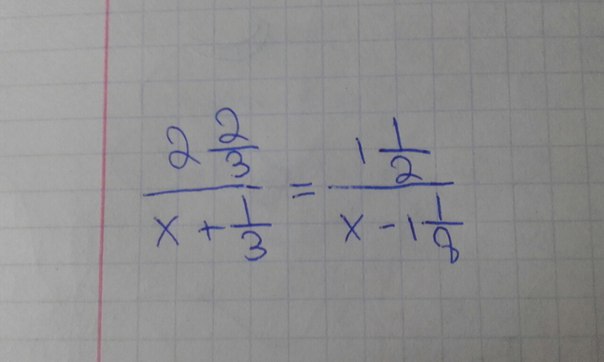 2 2/3 / (x + 1/3) = 1 1/2 / (x - 1 1/8)